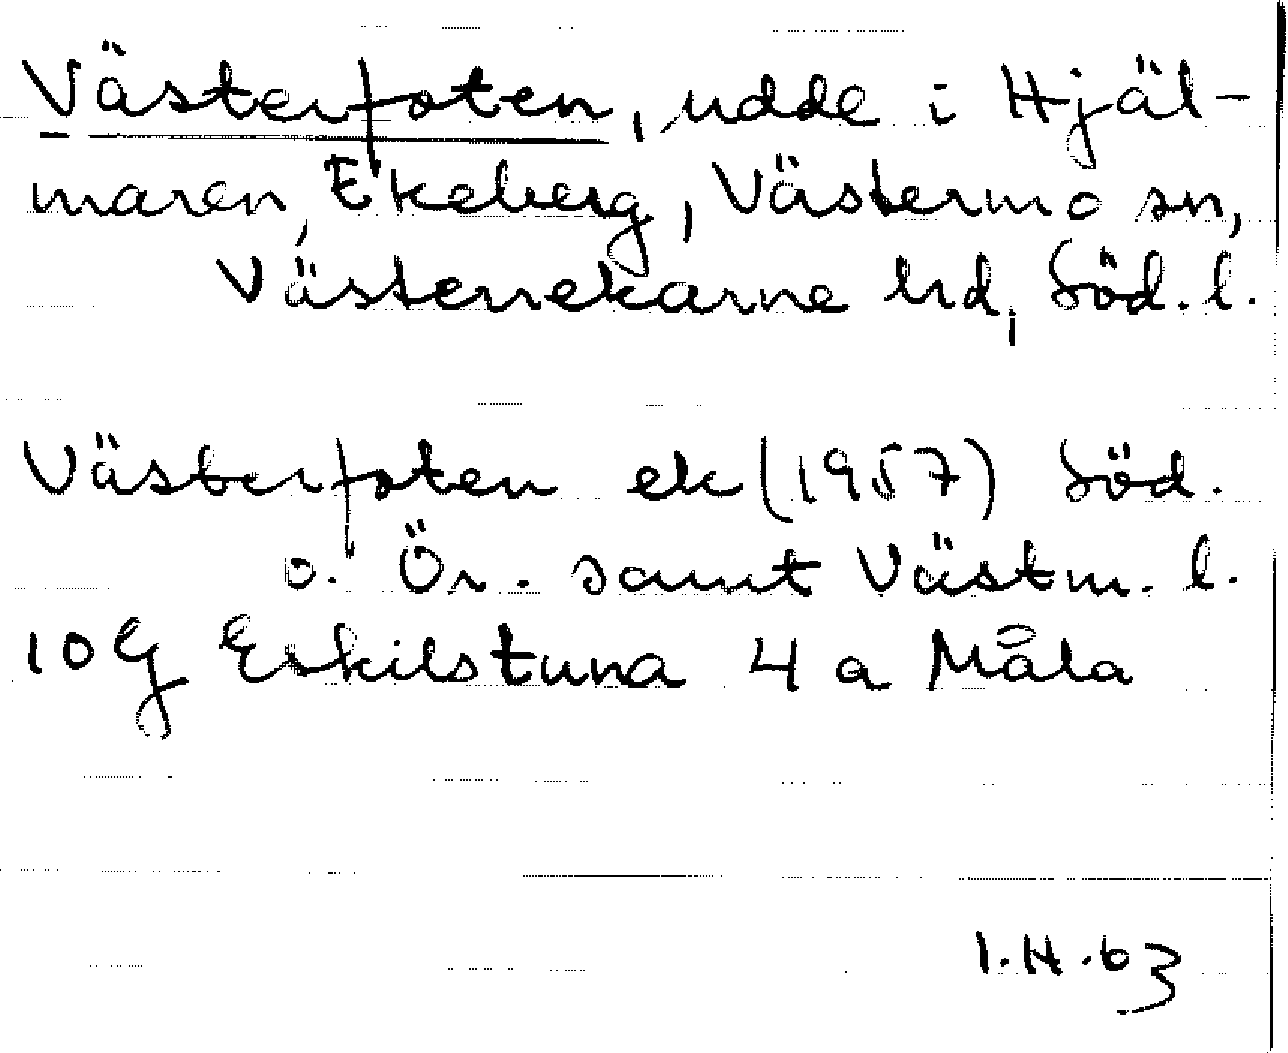 Västerfoten, udde i Hjäl-
maren, Ekeberg, Västermo sn,
Västerrekarne hd, Söd. l.
Västerfoten ek (1957) Söd.
o. Ör. samt Västm. l.
10 G Eskilstuna 4 a Måla
I.H.63